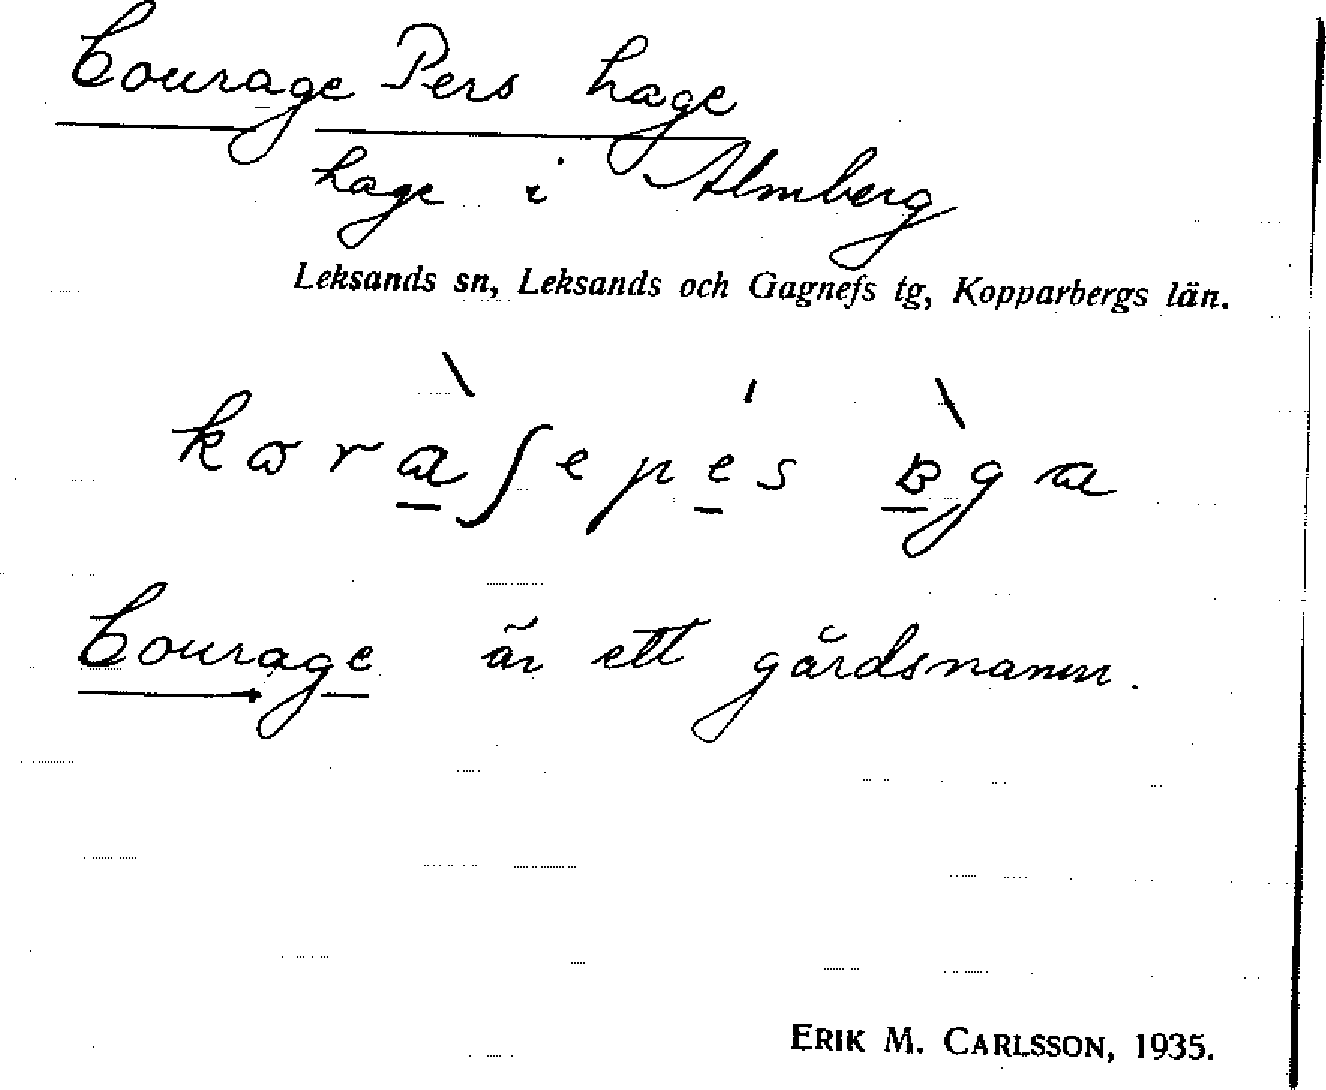 Courage Pers hage
hage i Almberg
Leksands sn, Leksands och Gagnefs tg, Kopparbergs län.
Courage är ett gårdsnamn.
ERIK M. CARLSSON, 1935.